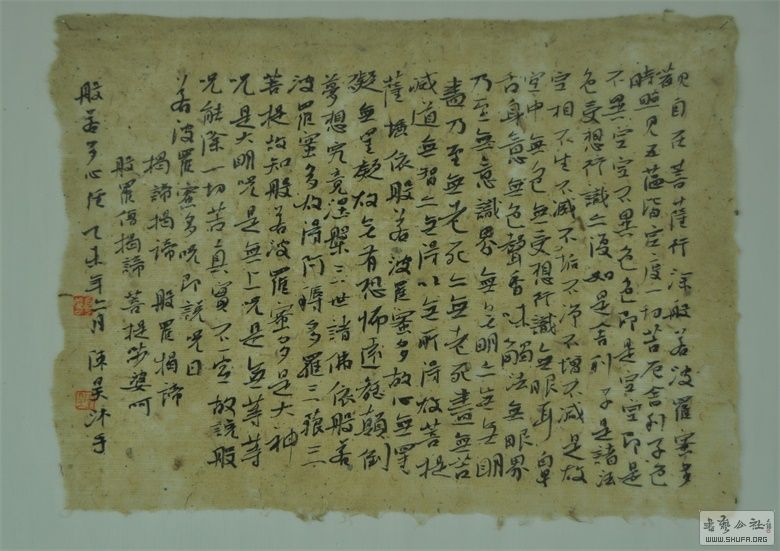 觀自在菩薩行深般若波羅蜜多
時照見五蘊皆空度一切苦厄舍利子色
不異空空不異色色即是空空即是
色受想行識亦復如是舍利子是諸法
空相不生不滅不垢不淨不增不減是故
空中無色無受想行識無眼耳鼻
舌身意無色聲香味觸法無眼界
乃至無意識界無無明亦無無明
盡乃至無老死亦無老死盡無苦
滅道無智亦無得以無所得故菩提
薩埵依般若波羅蜜多故心無罣
礙無罣礙故無有恐怖遠離顛倒
夢想究竟涅槃三世諸佛依般若
波羅蜜多故得阿耨多羅三藐三
菩提故知般若波羅蜜多是大神
咒是大明咒是無上咒是無等等
咒能除一切苦真實不虛故說般
若波羅蜜多咒即說咒曰
揭諦揭諦 般羅揭諦
般羅僧揭諦 菩提莎婆呵
般若多心經 乙未年六月 陳昊沐手
書藝公社
WWW.SHUFA.ORG